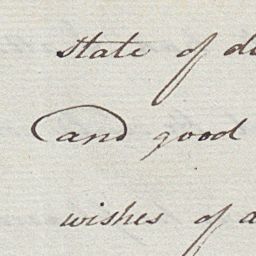 state of
and good
wishes of